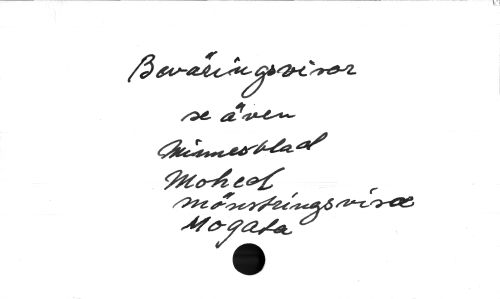 Beväringsvisor
se även
Minnesblad
Mohed
mönstringsvisa
Mogata